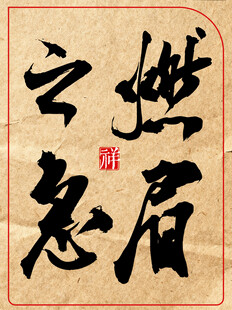 燃眉
之急
祥